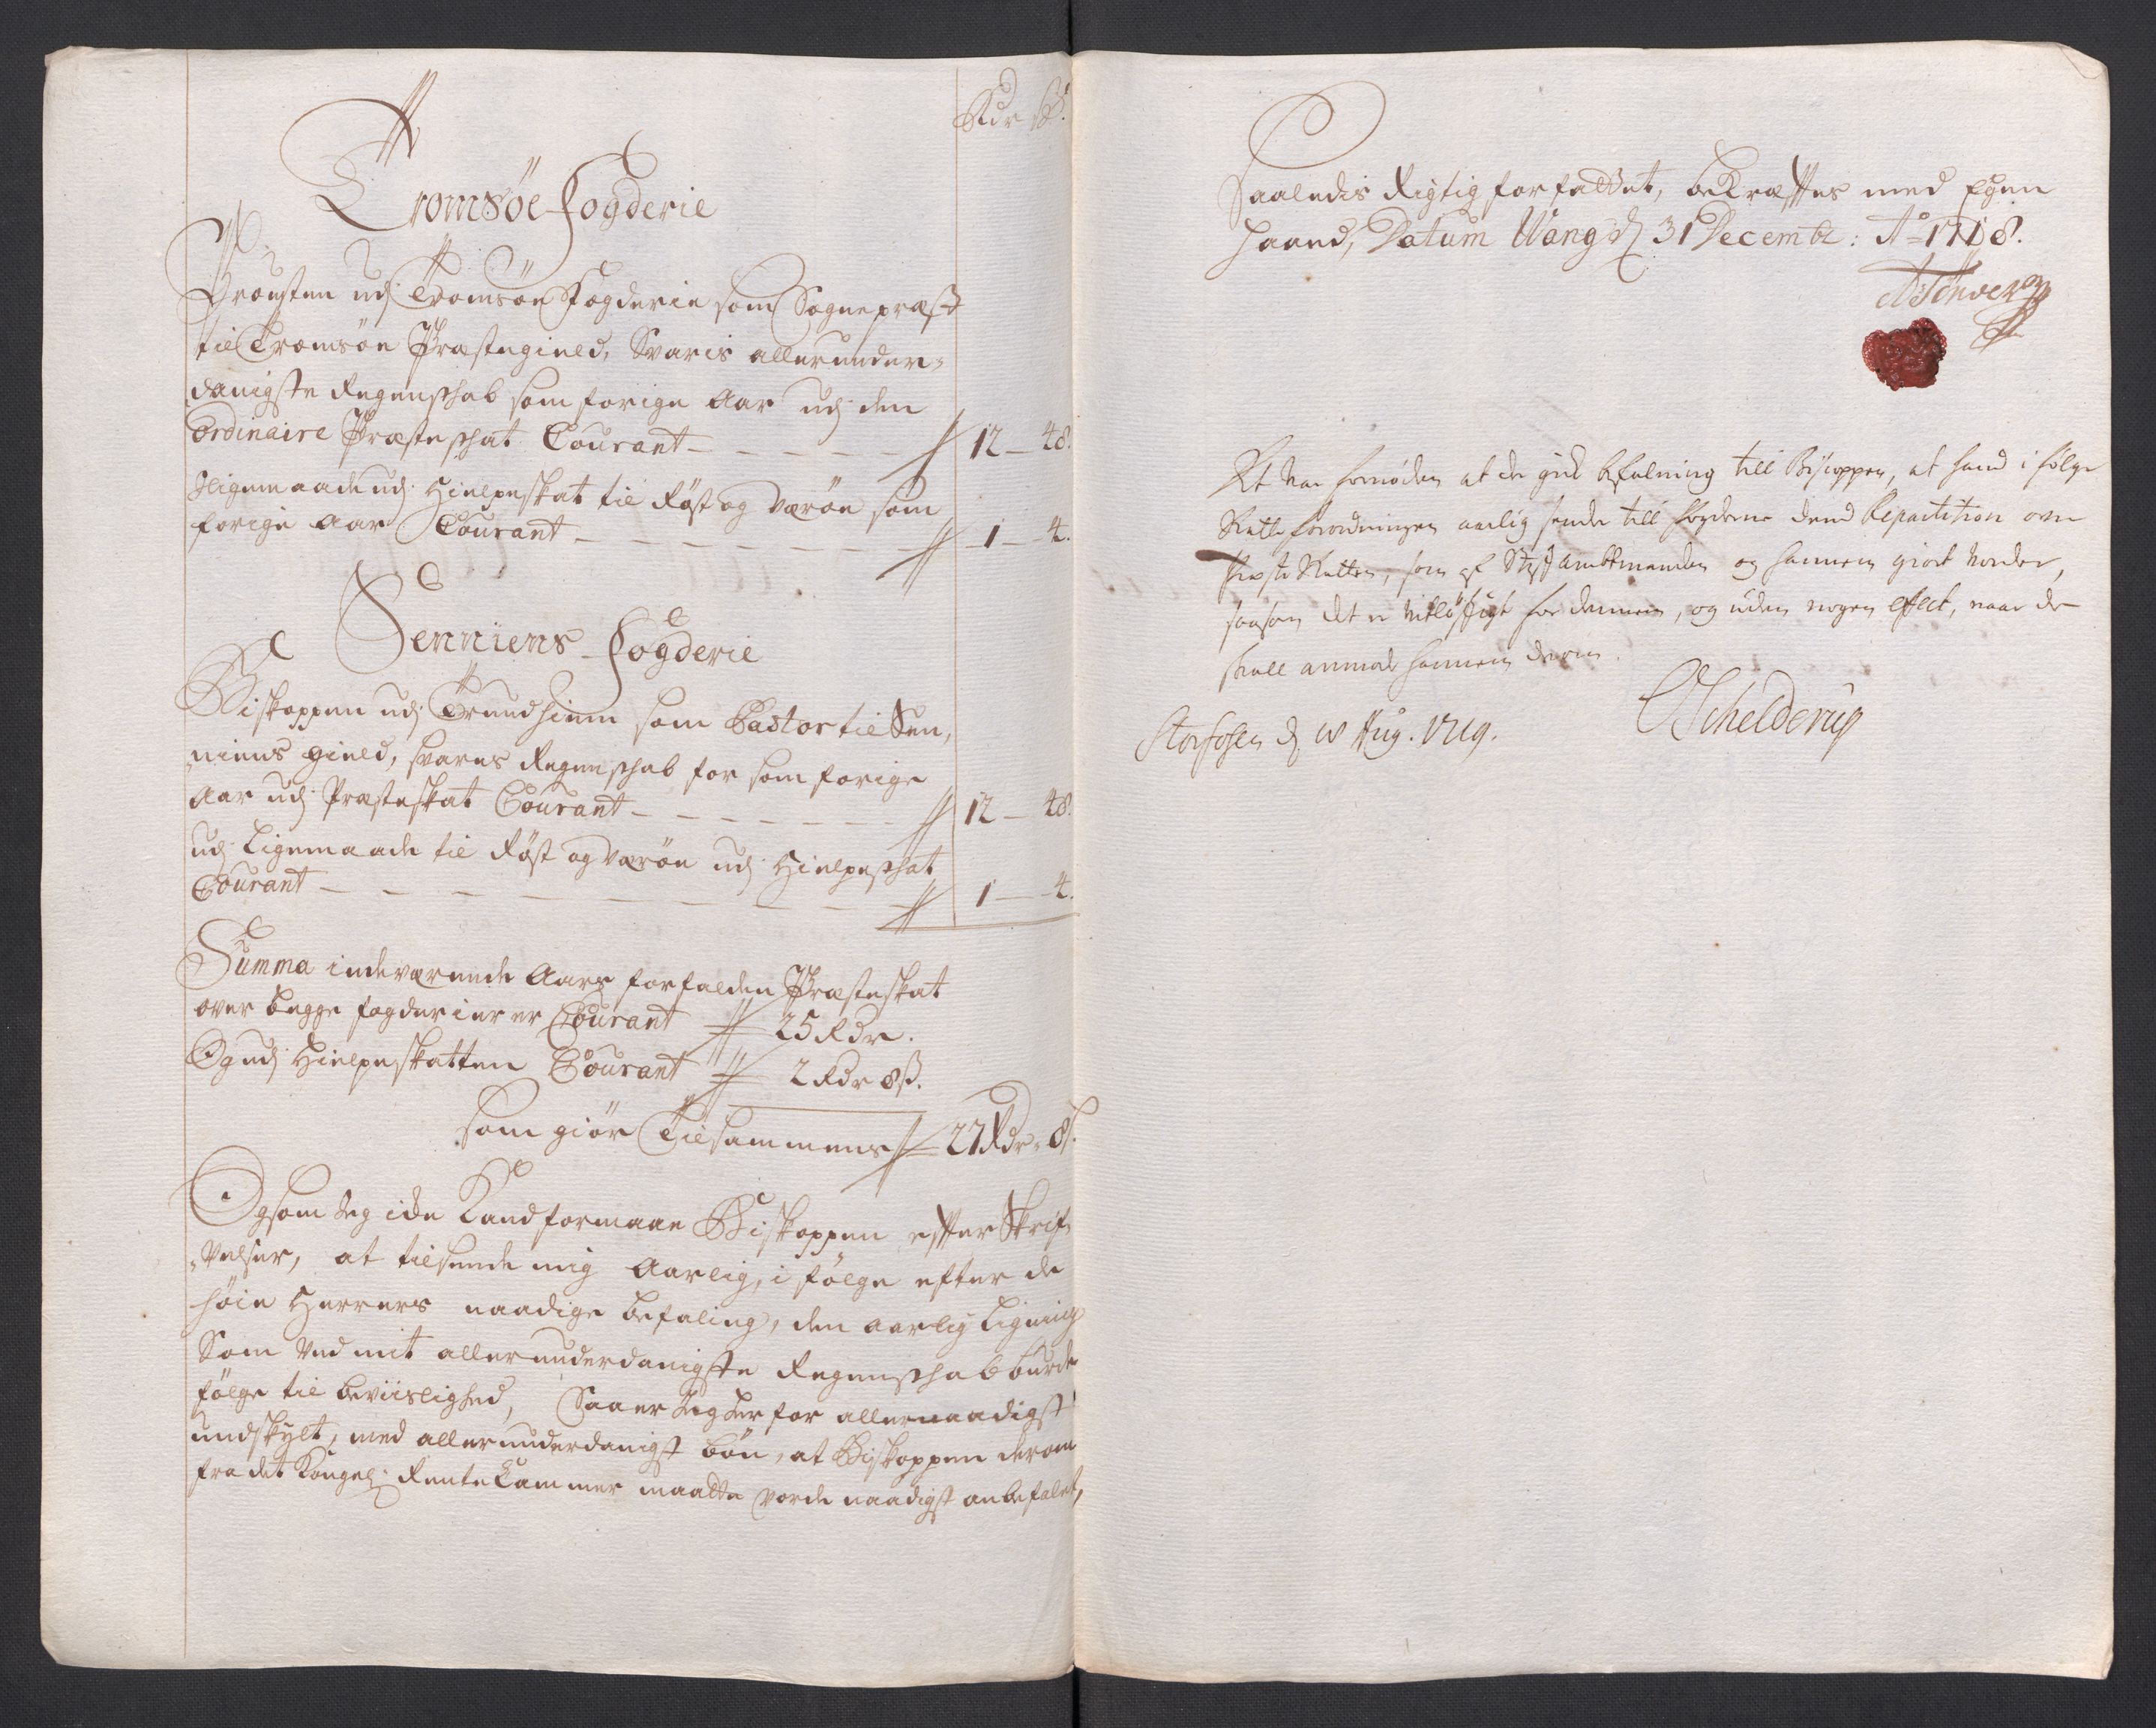 Rdr ß.
Tromsöe fogderie
Prousten udj Tromsöe Fogderie som Sognepræst
til Tromsöe Præstegield, Svaris allerunder-
danigste Regenschab som forige Aar udj den
Ordinaire Præsteschat Courant – – – – – 12 – 48.
Ligemaade udj Hielpeskat til Röst og Væröe som
forige Aar Courant – – – – – – – 1 – 4.
Senniens fogderie
Biskoppen udj Trundhiem som Pastor til Sen,
niens gield, svares Regenschab for som forige
Aar udj Præsteskat Courant – – – – – – 12 – 48.
udj Ligemaade til Röst og Væröe udj Hielpeschat
Courant – – – – – – – – – 1 – 4.
Summa indeværende Aars forfalden Præsteskat
over begge fogderier er Courant 25 Rdr.
Og udj Hielpeskatten Courant 2 Rdr 8 ß.
som giör Tilsammens 27 Rdr. 8
Og som Jeg icke Kand formaae Biskoppen effter Skrif,
velser, at tilsende mig Aarlig, i fölge efter de
höie Herrers naadige befaling, den aarlig Ligning
Som ved mit allerunderdanigste Regenschab burde
fölge til beviislighed, Saa er Jeg derfor allernaadigst
undskylt, med allerunderdanigst bön, at Biskoppen derom
fra det Kongel: Rente Cammer maatte vorde naadigst anbefalet,
Saaledis Rigtig forfattet, bekræfftes med Egen
haand, Datum Wang d 31 Decembr: A° 1718.
Et var fornöden at der gik befalning till Biscoppen, at hand i fölge
Skatte forordningen aarlig sender till fogderne dend Repartition over
Præste Skatten, som af Stiftamtmanden og hannem giort vorder,
saasom det er vitlöftigt for dennem, og uden nogen effect, naar de
skall anmode hannem derom.
Storfosen d 18 Aug. 1719.
Schelderup